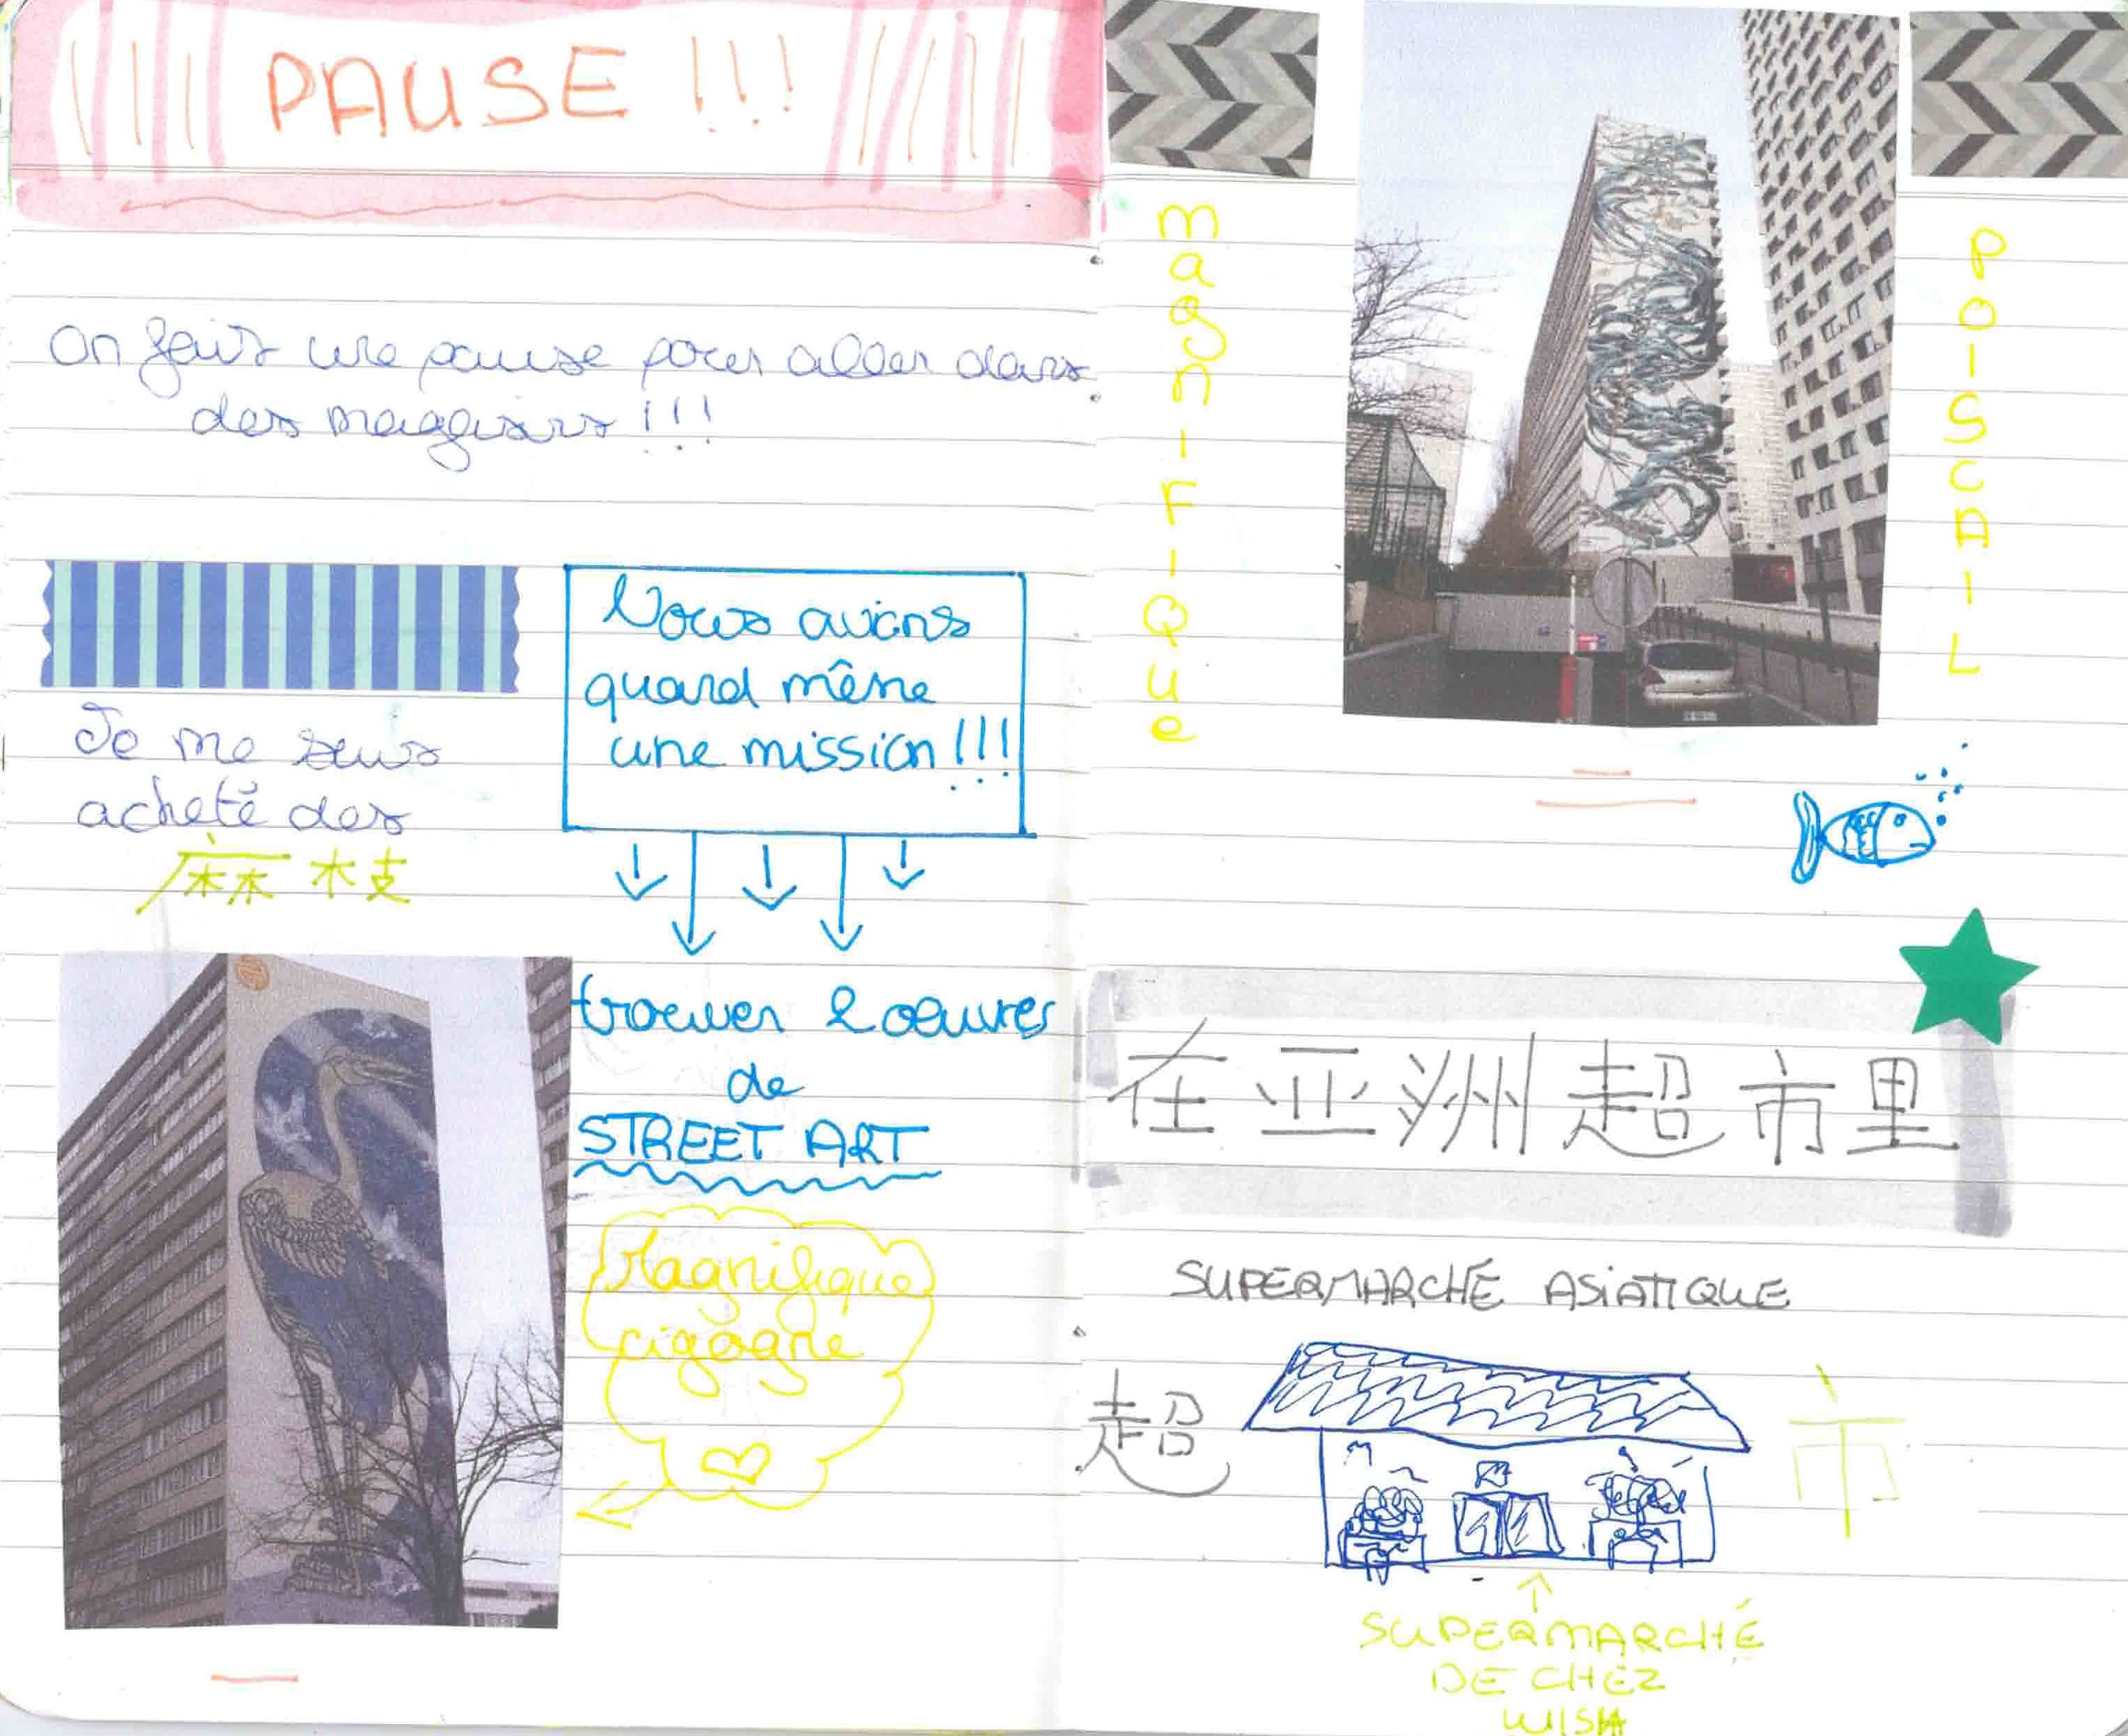 PAUSE !!!
On fait une pause pour aller dans
des magasins !!!
Je me suis
acheté des
麻枝
Nous avions
quand même
une mission !!!
trouver 2 oeuvres
de
STREET ART
Magnifique
cigogne
magniFique
POISCAIL
在亚洲超市里
SUPERMARCHÉ ASIATIQUE
超
市
SUPERMARCHÉ
DE CHEZ
WISH